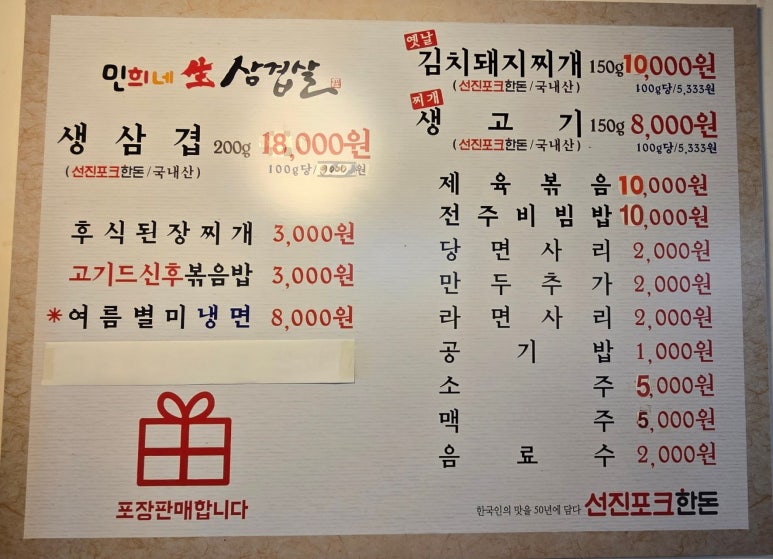 민희네 生 삼겹살
생삼겹 200g 18,000원
(선진포크한돈/국내산) 100g당/9000원
후식된장찌개 3,000원
고기드신후볶음밥 3,000원
*여름별미냉면 8,000원
포장판매합니다
옛날
김치돼지찌개 150g 10,000원
(선진포크한돈/국내산) 100g당/5,333원
찌개
생고기 150g 8,000원
(선진포크한돈/국내산) 100g당/5,333원
제육볶음 10,000원
전주비빔밥 10,000원
당면사리 2,000원
만두추가 2,000원
라면사리 2,000원
공기밥 1,000원
소주 5,000원
맥주 5,000원
음료수 2,000원
한국인의 맛을 50년에 담다 선진포크한돈